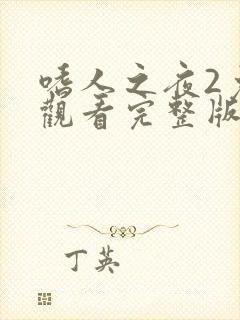 嗜人之夜2
觀看完整版
丁英